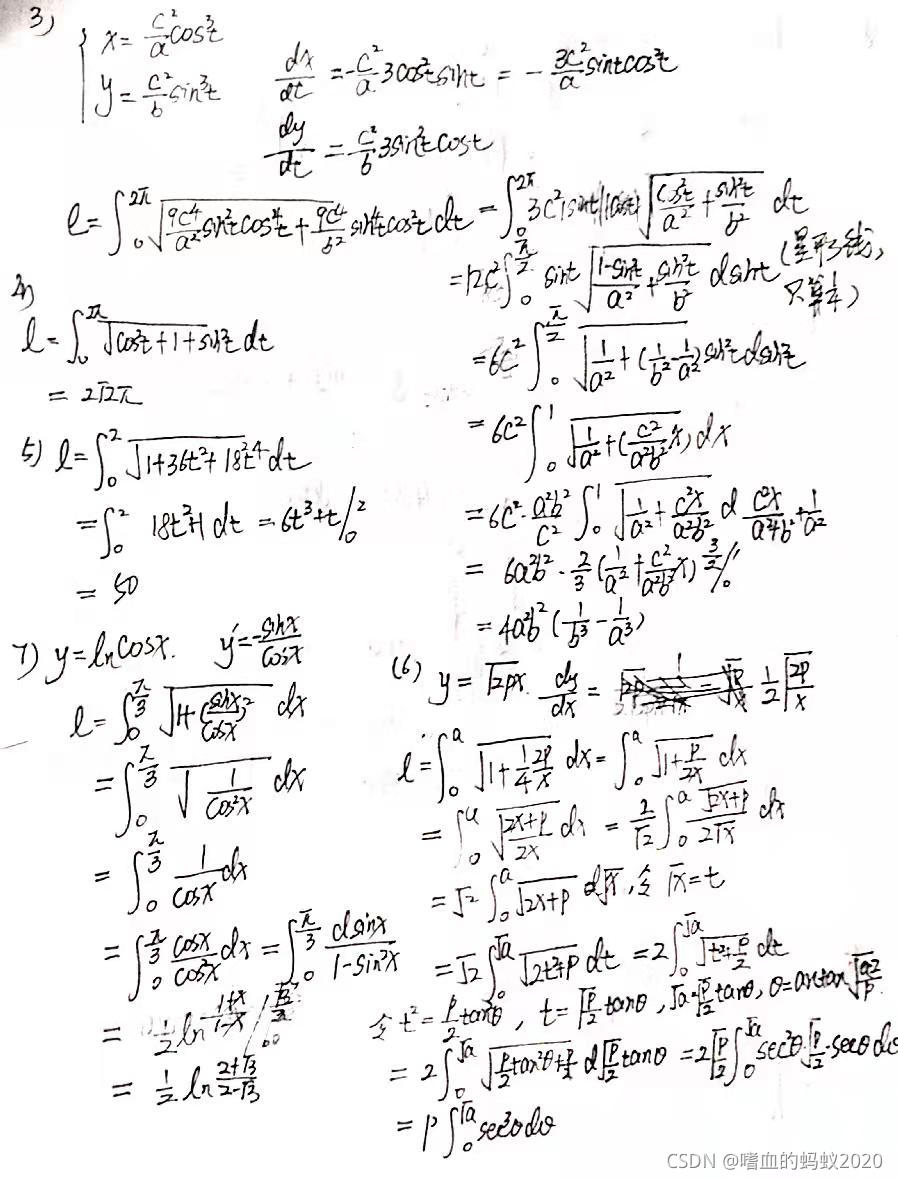 3)
{ x = c²/a cos³t
y = c²/b sin³t
dx/dt = -c²/a 3cos²t sint = - 3c²/a sint cos²t
dy/dt = c²/b 3sin²t cost
l = ∫₀^2π √(9c⁴/a² sin²t cos⁴t + 9c⁴/b² sin⁴t cos²t) dt = ∫₀^2π 3c²|sint||cost| √(cos²t/a² + sin²t/b²) dt
= 12c² ∫₀^π/2 sint √((1-sin²t)/a² + sin²t/b²) dsint (星形线, 只算1/4)
= 6c² ∫₀^π/2 √(1/a² + (1/b² - 1/a²) sin²t) dsin²t
= 6c² ∫₀^1 √(1/a² + (c²/a²b² x)) dx
= 6c² · a²b²/c² ∫₀^1 √(1/a² + c²x/a²b²) d c²x/a²b² + 1/a²
= 6a²b² · 2/3 (1/a² + c²/a²b² x)^3/2 |₀^1
= 4a²b² (1/b³ - 1/a³)
4)
l = ∫₀^2π √(cos²t + 1 + sin²t) dt
= 2√2π
5) l = ∫₀^2 √(1 + 36t² + 18²t⁴) dt
= ∫₀^2 18t²+1 dt = 6t³+t |₀^2
= 50
7) y = lncosx. y' = -sinx/cosx
l = ∫₀^π/3 √(1+(sinx/cosx)²) dx
= ∫₀^π/3 √(1/cos²x) dx
= ∫₀^π/3 1/cosx dx
= ∫₀^π/3 cosx/cos²x dx = ∫₀^π/3 dsinx/(1-sin²x)
= 1/2 ln (1+x)/(1-x) |₀^√3/2
= 1/2 ln (2+√3)/(2-√3)
(6) y = √2px. dy/dx = 1/2 √(2p/x)
l = ∫₀^a √(1 + 1/4 2p/x) dx = ∫₀^a √(1 + p/2x) dx
= ∫₀^a √((2x+p)/2x) dx = 2/√2 ∫₀^a √(2x+p)/2√x dx
= √2 ∫₀^a √(2x+p) d√x, 令 √x = t
= √2 ∫₀^√a √(2t²+p) dt = 2 ∫₀^√a √(t²+p/2) dt
令 t² = p/2 tan²θ, t = √(p/2) tanθ, √a = √(p/2) tanθ, θ = arctan √(a2/p)
= 2 ∫₀^√a √(p/2 tan²θ + p/2) d√(p/2) tanθ = 2√(p/2) ∫₀^√a sec²θ · √(p/2) · secθ dθ
= p ∫₀^√a sec³θ dθ
CSDN @嗜血的蚂蚁2020